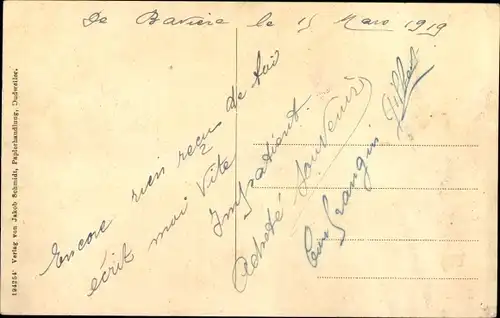 De Baviere le 15 Mars 1919
Encore rien reçu de toi
écrit moi Vite
Impatient.
Souvenir
194254 Verlag von Jakob Schmidt, Papierhandlung, Dudweiler.